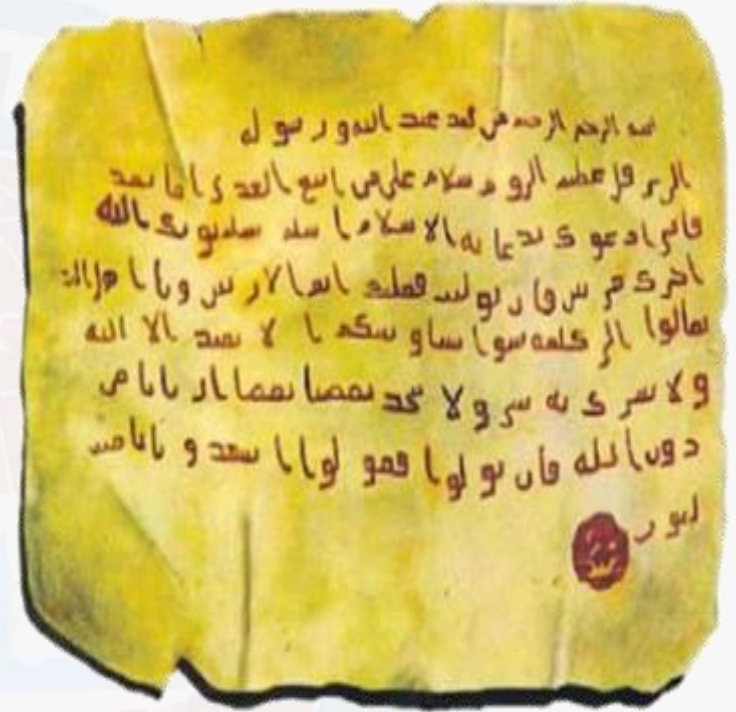 بسم الله الرحمن الرحيم من محمد عبد الله ورسوله
الى هرقل عظيم الروم سلام على من اتبع الهدى اما بعد
فانى ادعوك بدعاية الاسلام اسلم تسلم يوتك الله
اجرك مرتين فان توليت فعليك اثم الاريسين ويا اهل
تعالوا الى كلمة سوا بيننا وبينكم الا نعبد الا الله
ولا نشرك به شيا ولا يتخذ بعضنا بعضا اربابا من
دون الله فان تولوا فقولوا اشهدوا بانا مسـ
لمون